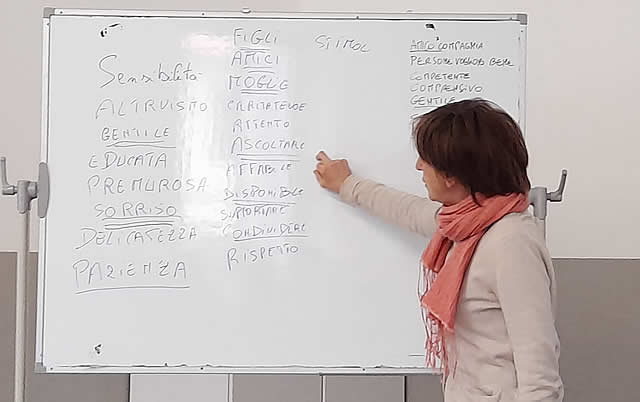 Sensibilità
ALTRUISMO
GENTILE
EDUCATA
PREMUROSA
SORRISO
DELICATEZZA
PAZIENZA
FIGLI
AMICI
MOGLIE
CARITATEVOLE
ATTENTO
ASCOLTARE
AFFABILE
DISPONIBILE
SUPPORTARE
CONDIVIDERE
RISPETTO
STIMOL
COMPAGNIA
PERSONE VOGLIONO BENE
COMPETENTE
COMPRENSIVO
GENTILE